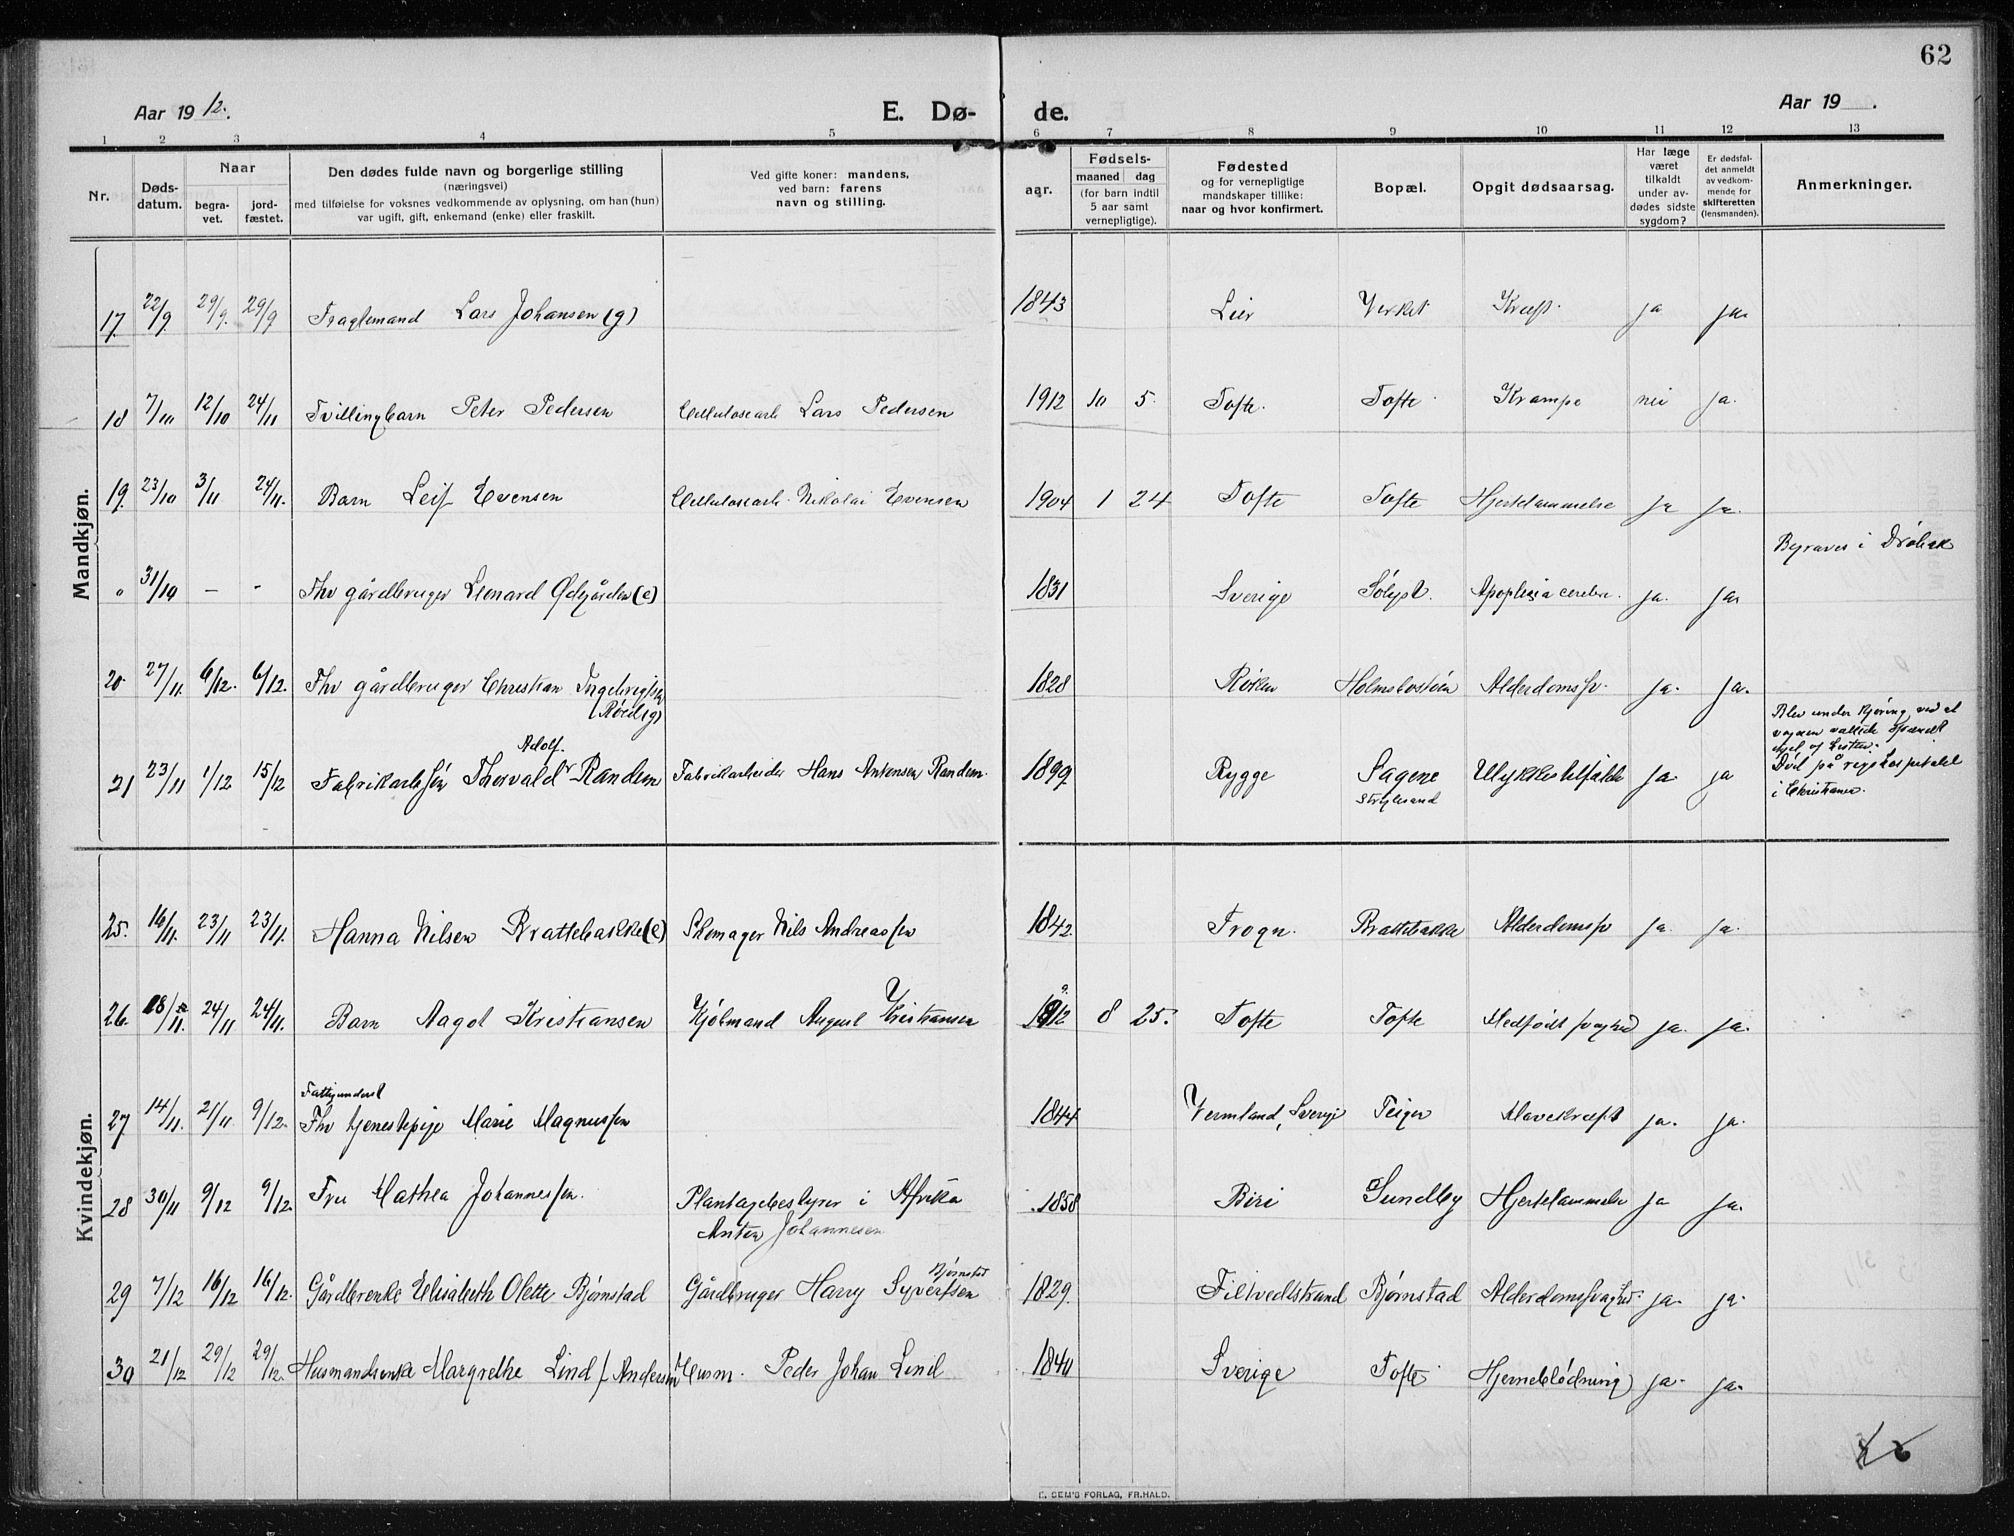 62
Aar 1912.
E. Dø-
de.
Aar 19 .
1 2 3 4 5 6 7 8 9 10 11 12 13
Nr.
Døds-
datum.
Naar
begra-
vet.
jord-
fæstet.
Den dødes fulde navn og borgerlige stilling
(næringsvei)
med tilføielse for voksnes vedkommende av oplysning, om han (hun)
var ugift, gift, enkemand (enke) eller fraskilt.
Ved gifte koner: mandens,
ved barn: farens
navn og stilling.
aar.
Fødsels-
maaned dag
(for barn indtil
5 aar samt
vernepligtige).
Fødested
og for vernepligtige
mandskaper tillike:
naar og hvor konfirmert.
Bopæl.
Opgit dødsaarsag.
Har læge
været
tilkaldt
under av-
dødes sidste
sygdom?
Er dødsfal-
det anmeldt
av vedkom-
mende for
skifteretten
(lensmanden).
Anmerkninger.
Mandkjøn.
17. 22/9 29/9. 29/9 Lars Johansen (g) 1843 Lier Verket Kræft. ja ja.
18 7/10 12/10 24/11 Tvillingbarn Peter Pedersen Cellulosearb Lars Pedersen 1912 10 5. Tofte. Tofte Krampe nei ja.
19. 23/10 3/11 24/11. Barn Leif Evensen Cellulosearb. Nikolai Evensen 1904 1 24 Tofte Tofte Hjertelammelse ja ja.
" 31/10 – - Fhv gårdbruger Leonard Ødegården (e) 1831 Sverige Solyst. Apoplexia cerebri. ja. ja. Begraves i Drøbak
20. 27/11. 6/12. 6/12. Fhv gårdbruger Christian Ingebrigtsen 1828 Røken Holmsbostøen Alderdomssv. ja. ja.
(Røed (g)
Blev under kjøring ved at
vognen væltede
af hesten.
21 23/11 1/12 15/12 Fabrikarb søn Thorvald Adolf. Randem Fabrikarbeider Hans Antensen Randem. 1899 Rygge Sagene Ulykkestilfælde ja. ja Død på rigshospitalet
i Christiania.
Kvindekjøn.
25. 16/11. 23/11 23/11. Hanna Nilsen Brattebakke (e) Skomager Nils Andreassen 1842. Frogn. Brattebakke Alderdomssv ja. ja.
26. 18/11. 24/11 24/11. Barn Aagot Kristiansen Kjølmand August Kristiansen 1912 8 25. Tofte Tofte Medfødt svaghed ja. ja.
Fattigunderst
27 14/11. 21/11 9/12. Fhv tjenestepige Marie Magnussen 1844 Vermland, Sverige Teigen Mavekræft ja. ja.
28 30/11 9/12 9/12. Fru Mathea Johannessen. Plantagebestyrer i Afrika 1858 Biri Sundby Hjertelammelse ja ja.
Anton Johannesen
29 7/12 16/12 16/12. Gårdbrenke Elisabeth Olette Bjørnstad Gårdbruger Harry Syvertsen Bjørnstad 1829. Filtvedtstrand Bjørnstad Alderdomssvaghed. ja. ja.
30 21/12 29/12 29/12. Husmandsenke Margrethe Lind f. Andersen Husm. Peder Johan Lind 1840 Sverige Tofte Hjerneblødning ja. ja.
E. SEM'S FORLAG, FR.HALD.